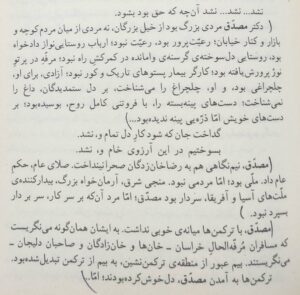 نشد... نشد... نشد آن‌چه که حق بود بشود.
( دکتر مصدّق مردی بزرگ بود از خیل بزرگان، نه مردی از میان مردم کوچه و
بازار و کنار خیابان؛ رعیّت‌پرور بود، رعیّت نبود؛ ارباب روستایی‌نواز دادخواه
بود، روستایی دل‌سوخته‌ی گرسنه‌ی وامانده در کمرکش راه نبود؛ مرفّهِ در پرتوِ
نور پرورش‌یافته بود؛ کارگر بیمار پستوهای تاریک و کور نبود؛ آزادی، برای او،
چلچراغی بود، و او، چلچراغ را می‌شناخت، بر دل ستمدیدگان، داغ را
نمی‌شناخت؛ دست‌های پینه‌بسته، را، با فروتنی کامل روح، بوسیده‌بود؛ بر
دست‌های خویش امّا ذرّه‌یی پینه ندیده‌بود...)
گداخت جان که شود کار دل تمام و، نشد.
بسوختیم در این آرزوی خام و، نشد.
(مصدّق، نیم‌نگاهی هم به رضاخان‌زدگان صحرا نینداخت. صلای عام، حکمِ
عام داد. ملّی بود؛ امّا مردمی نبود. منجی شرق، آرمان‌خواه بزرگ، بیدارکننده‌ی
ملّت‌های آسیا و آفریقا، سردار بود مصدّق؛ امّا مرد آن‌که بر سرِ کار، سر بر دار
بسپرد نبود. )
(مصدّق، با ترکمن‌ها میانه‌ی خوبی نداشت. به ایشان همان‌گونه می‌نگریست
که مسافران مُرفّه‌الحال خراسان - خان‌ها و خان‌زادگان و صاحبان دلیجان -
می‌نگریستند. بیم عبور از منطقه‌ی ترکمن‌نشین، به بیم از ترکمن تبدیل‌شده‌بود.
ترکمن‌ها به آمدن مصدّق، دل‌خوش‌کرده‌بودند؛ امّا...)